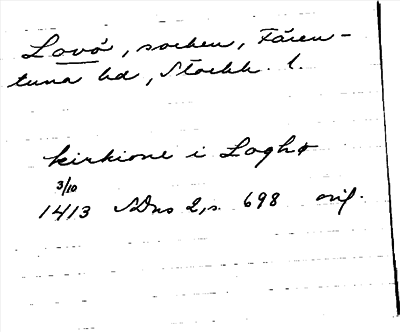 Lovö, socken, Fären-
tuna hd, Stockh. l.
kirkione i Loghø
3/10
1413 SDns 2, s. 698 orig.